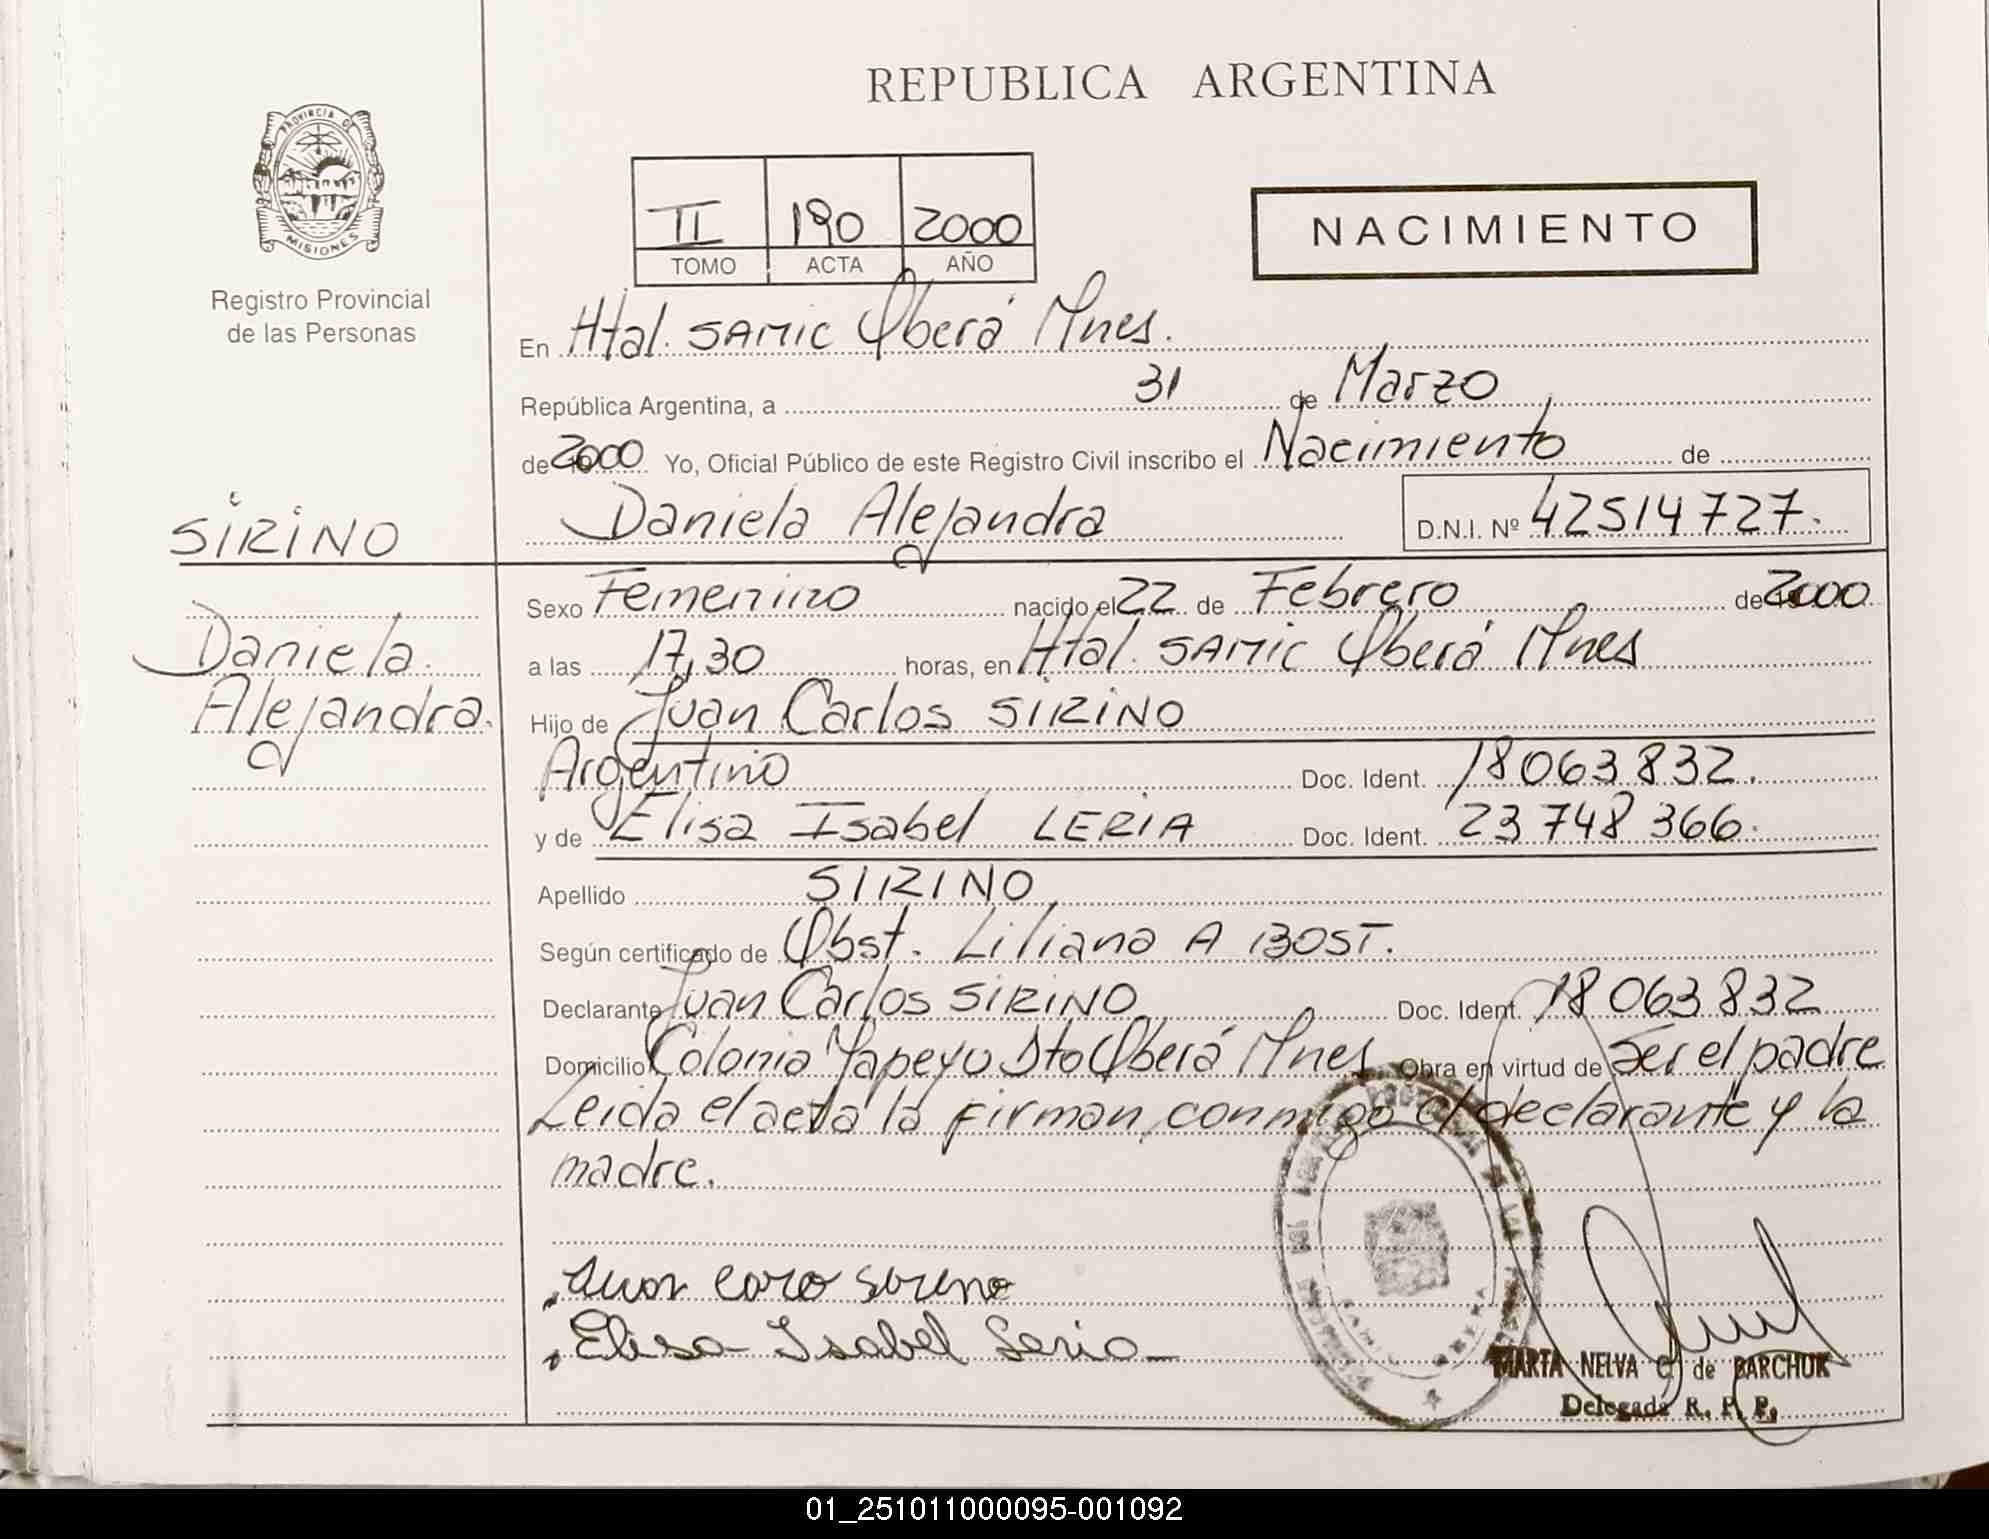 REPUBLICA ARGENTINA
PROVINCIA DE
MISIONES
Registro Provincial
de las Personas
II 190 2000
TOMO ACTA AÑO
NACIMIENTO
En Htal. SAMIC Oberá Mnes.
República Argentina, a 31 de Marzo
de 2000 Yo, Oficial Público de este Registro Civil inscribo el Nacimiento de
SIRINO
Daniela Alejandra D.N.I. Nº 42514727.
Sexo Femenino nacido el 22 de Febrero de 2000
Daniela
Alejandra.
a las 17,30 horas, en Htal. SAMIC Oberá Mnes
Hijo de Juan Carlos SIRINO
Argentino Doc. Ident. 18063832.
y de Elisa Isabel LERIA Doc. Ident. 23748366.
Apellido SIRINO
Según certificado de Obst. Liliana A BOST.
Declarante Juan Carlos SIRINO Doc. Ident. 18063832
Domicilio Colonia Yapeyu Dto Oberá Mnes Obra en virtud de Ser el padre
Leida el acta la firman, conmigo el declarante y la
madre.
Juan caro sireno
Elisa Isabel Leria
MARTA NELVA C. de BARCHUK
Delegada R. P. P.
01_251011000095-001092